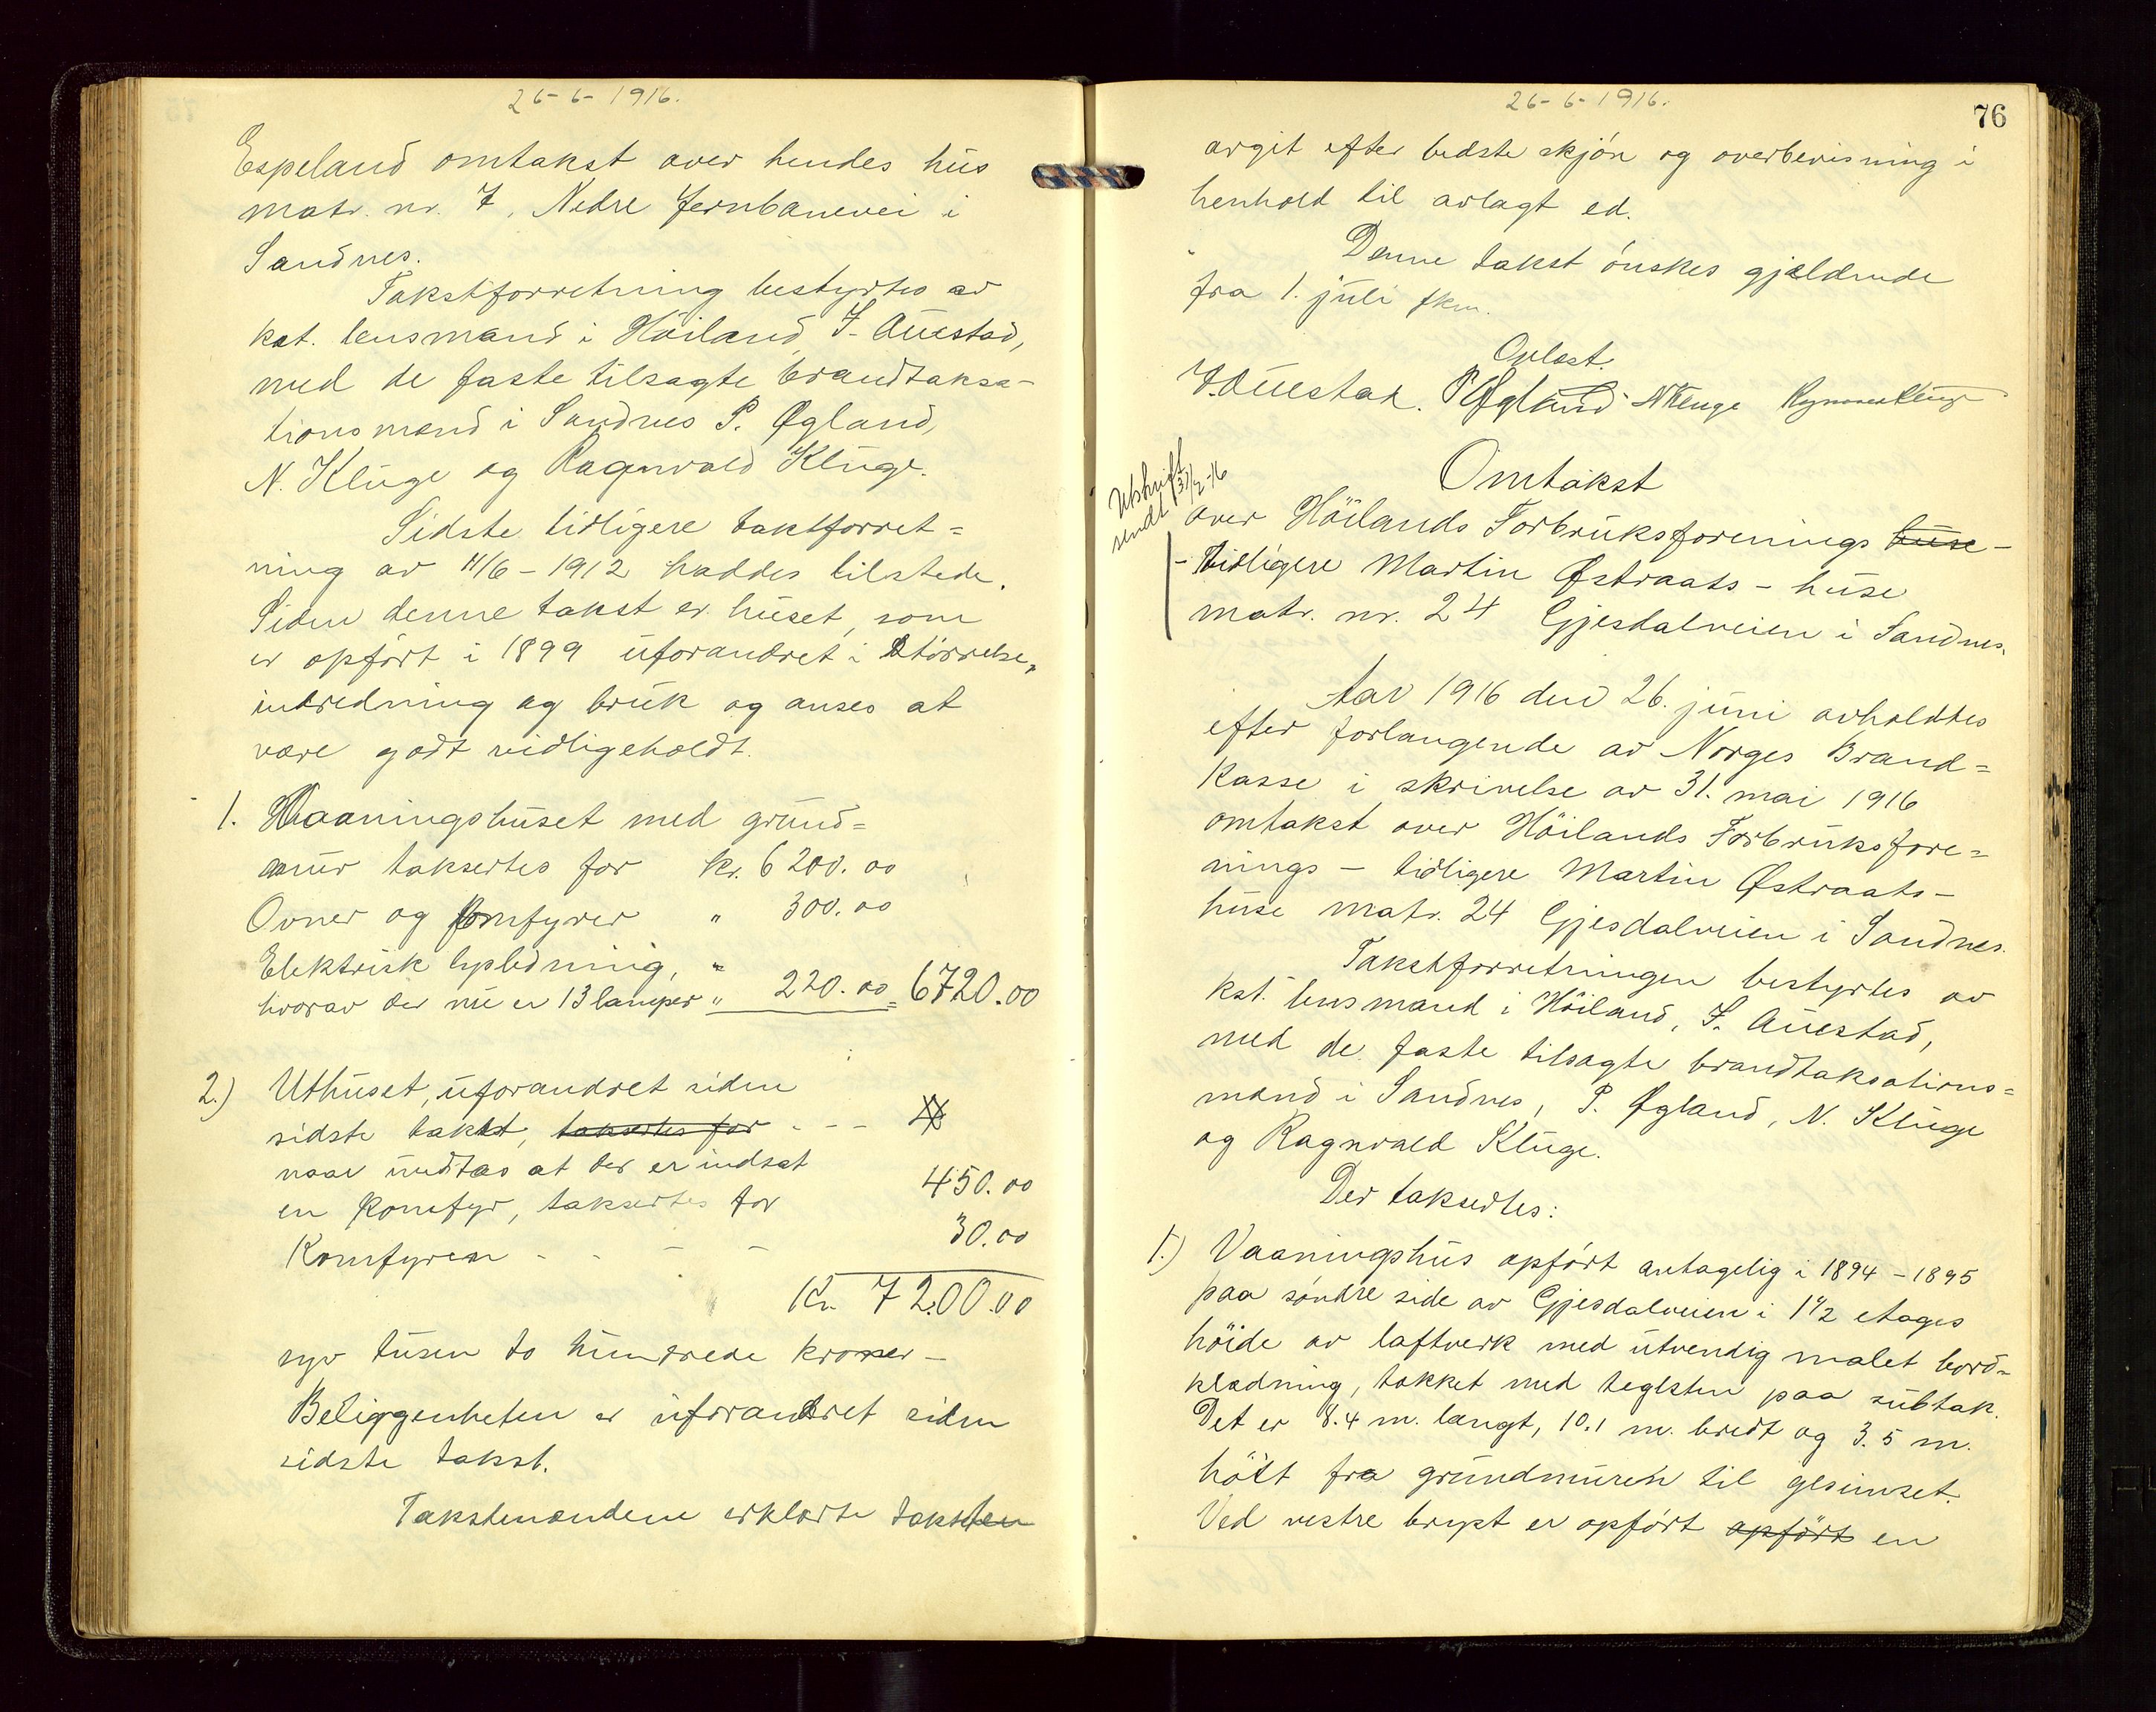 26-6-1916.
Espeland omtakst over hendes hus
matr. nr. 7, Nedre Jernbanevei i
Sandnes.
Takstforretning bestyrtes av
kst. lensmand i Höiland, J. Auestad,
med de faste tilsagte brandtaksa-
tionsmænd i Sandnes P. Øgland,
N. Kluge og Ragnvald Kluge.
Sidste tidligere takstforret=
ning av 11/6 - 1912 haddes tilstede.
Siden denne takst er huset, som
er opfört i 1899 uforandret i störrelse,
indredning og bruk og anses at
være godt vidligeholdt.
1. Vaaningshuset med grund=
mur taksertes for kr. 6200.00
Ovner og komfyrer " 300.00
Elektrisk lysledning, "
hvorav der nu er 13 lamper " 220.00 = 6720.00
2.) Uthuset, uforandret siden
sidste takst, taksertes for - - -
naar undtas at der er indsat
en komfyr, taksertes for 450.00
Komfyren - - - - 30.00
Kr. 7200.00
syv tusen to hundrede kroner -
Beliggenheten er uforandret siden
sidste takst.
Takstmændene erklærte taksten
26-6-1916.
76
avgit efter bedste skjön og overbevisning i
henhold til avlagt ed.
Denne takst önskes gjældende
fra 1. juli fkm.
Oplæst.
J. Auestad. P Øgland N Kluge Ragnvald Kluge
Omtakst
Utskrift
sendt
over Höilands Forbruksforenings huse -
- tidligere Martin Østraats - huse
matr. nr. 24 Gjesdalveien i Sandnes.
Aar 1916 den 26. juni avholdtes
efter forlangende av Norges Brand=
kasse i skrivelse av 31. mai 1916
omtakst over Höilands Forbruksfore=
nings - tidligere Martin Østraats -
huse matr. 24 Gjesdalveien i Sandnes.
Takstforretningen bestyrtes av
kst. lensmand i Höiland, J. Auestad,
med de faste tilsagte brandtaksations=
mænd i Sandnes, P. Øgland, N. Kluge
og Ragnvald Kluge.
Der taksertes:
1.) Vaaningshus opfört antagelig i 1894 - 1895
paa söndre side av Gjesdalveien i 1 1/2 etages
höide av laftverk med utvendig malet bord=
klædning, tækket med teglsten paa sutak.
Det er 8.4 m. langt, 10.1 m. bredt og 3.5 m.
höit fra grundmuren til gesimset.
Ved vestre bryst er opfört opfört en